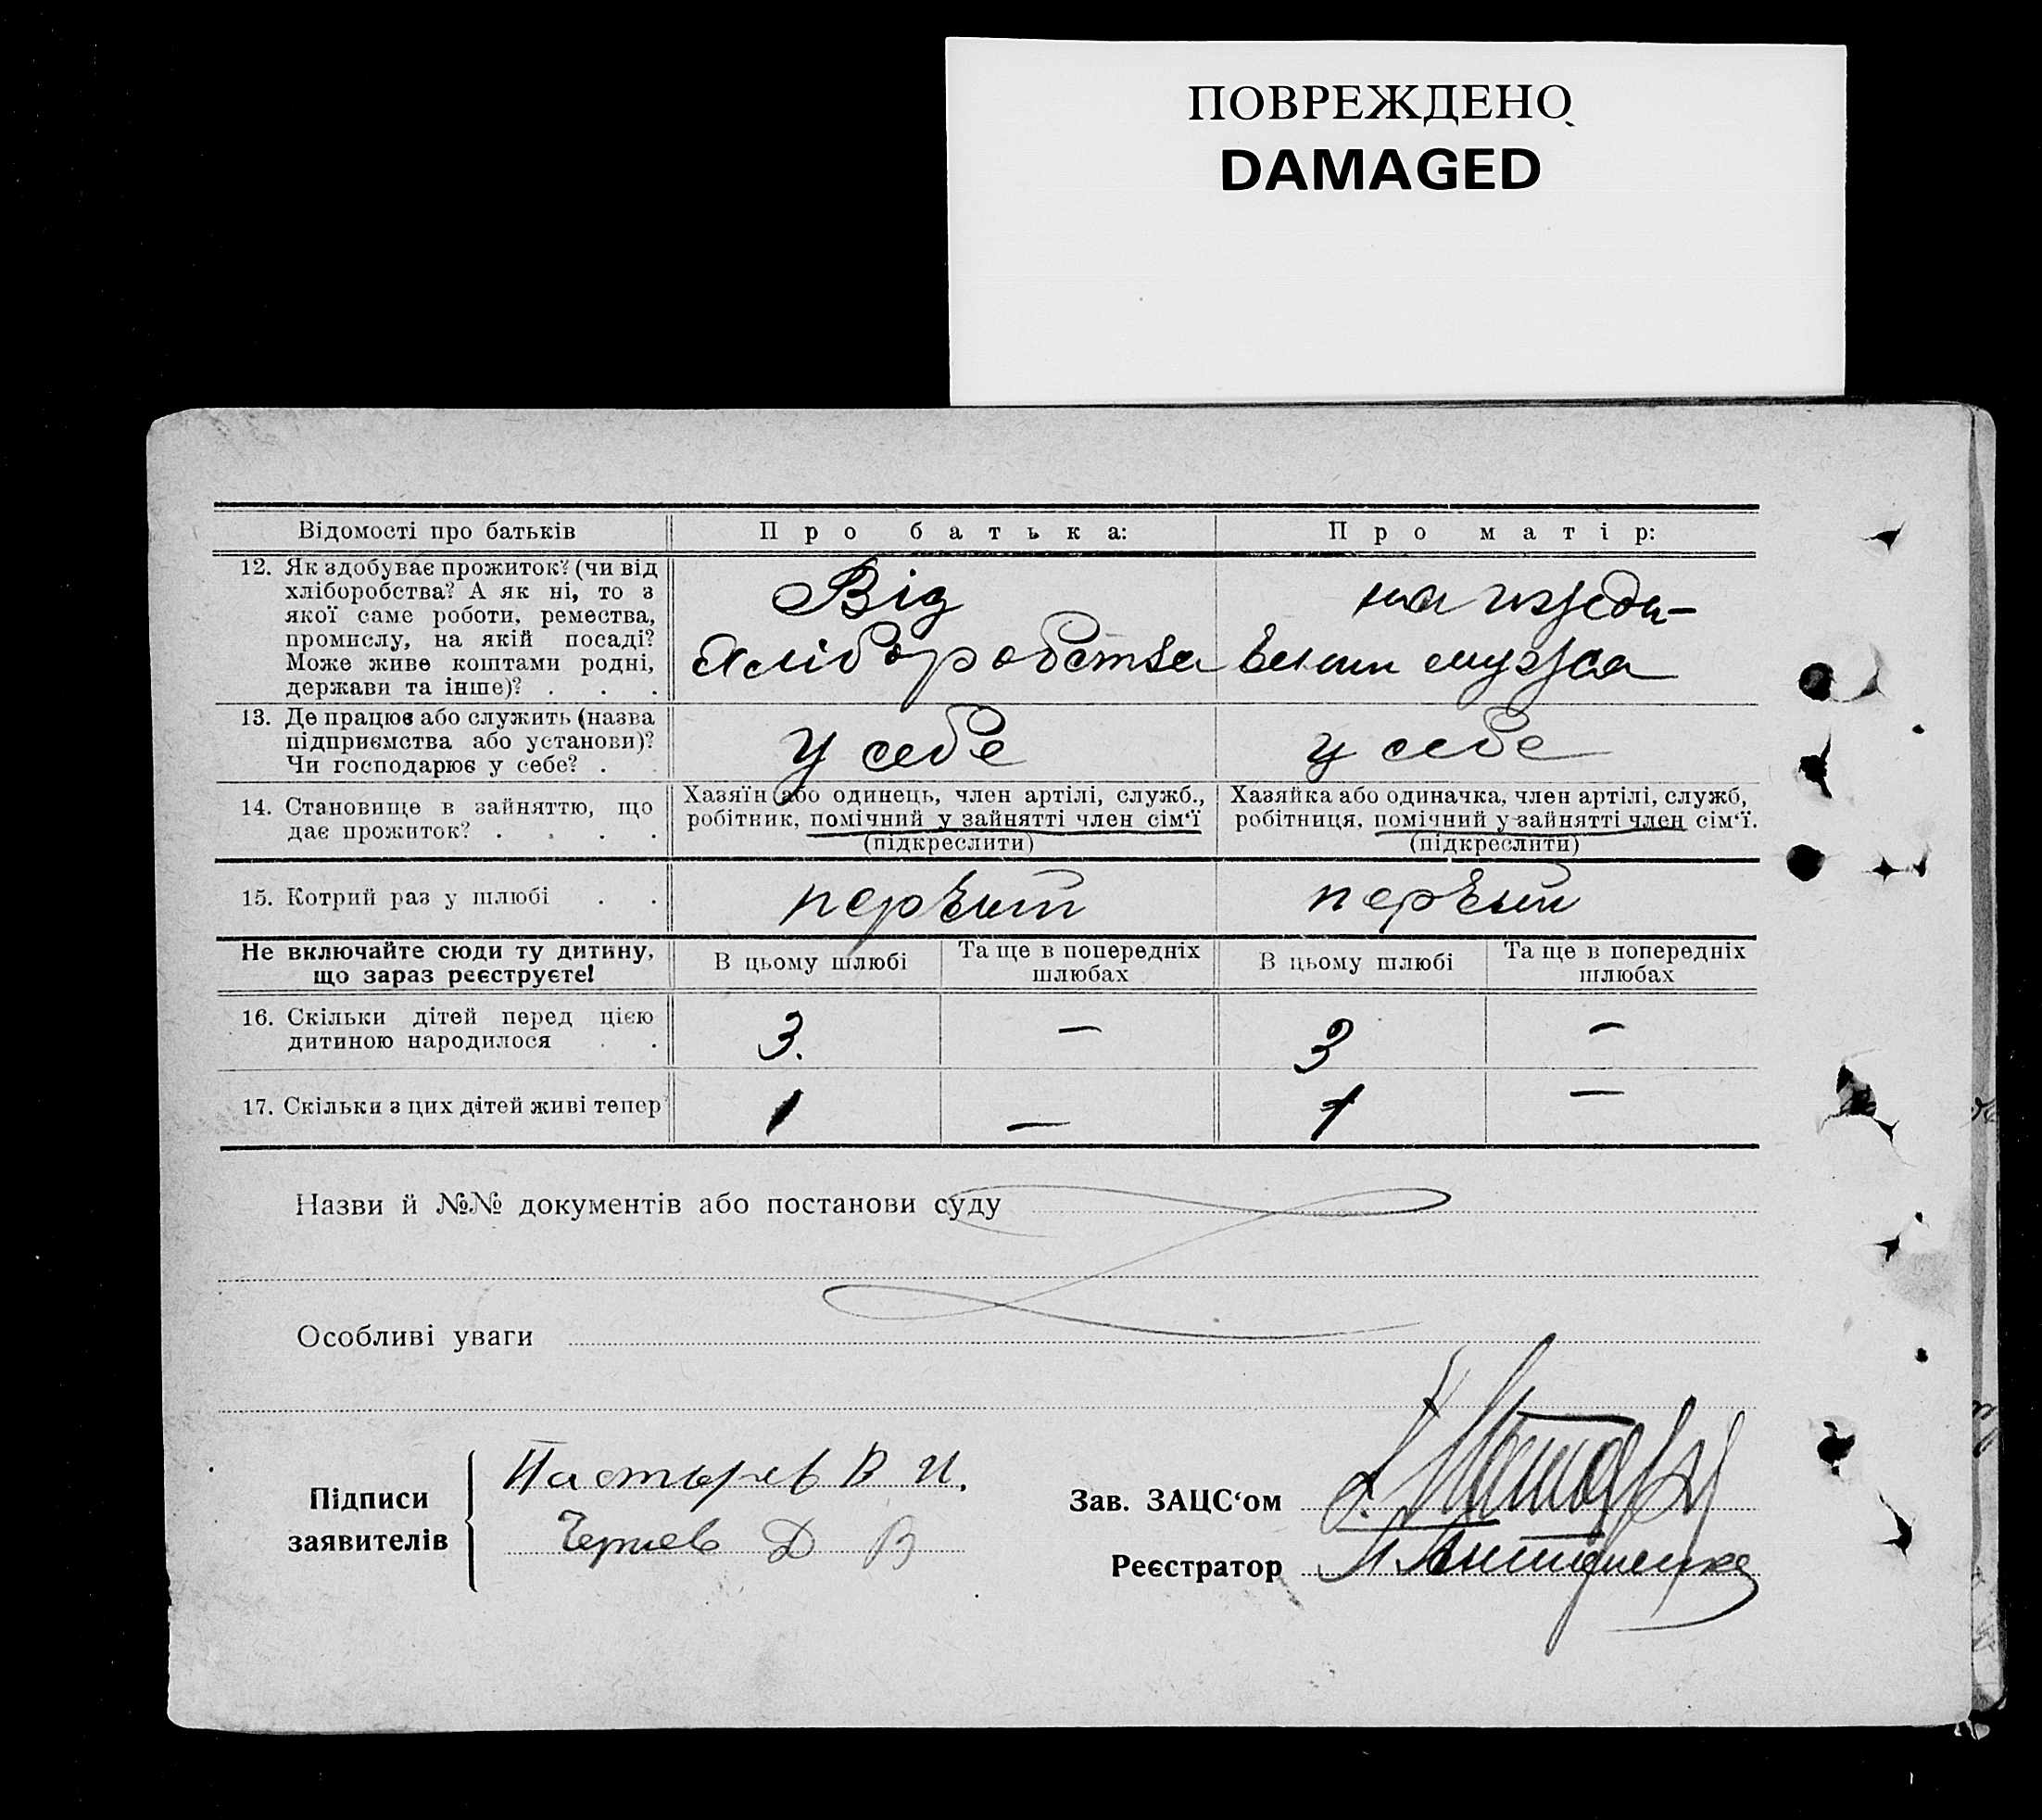 ПОВРЕЖДЕНО
DAMAGED
Відомості про батьків
Про батька:
Про матір:
12. Як здобуває прожиток? (чи від
хліборобства? А як ні, то з
якої саме роботи, ремества,
промислу, на якій посаді?
Може живе коштами родні,
держави та інше)? . . .
Від
хліборобства
на иждi-
вении мужа
13. Де працює або служить (назва
підприємства або установи)?
Чи господарює у себе? .
у себе
у себе
14. Становище в зайняттю, що
дає прожиток? . . . .
Хазяїн або одинець, член артілі, служб.,
робітник, помічний у зайнятті член сім‘ї
(підкреслити)
Хазяйка або одиначка, член артілі, служб,
робітниця, помічний у зайнятті член сім‘ї.
(підкреслити)
15. Котрий раз у шлюбі . .
первый
первый
Не включайте сюди ту дитину,
що зараз реєструєте!
В цьому шлюбі
Та ще в попередніх
шлюбах
В цьому шлюбі
Та ще в попередніх
шлюбах
16. Скільки дітей перед цією
дитиною народилося . .
3.
—
3
—
17. Скільки з цих дітей живі тепер
1
—
1
—
Назви й №№ документів або постанови суду
Особливі уваги
Підписи
заявителів
Пастырев В И.
Чернев Д В
Зав. ЗАЦС‘ом
Реєстратор